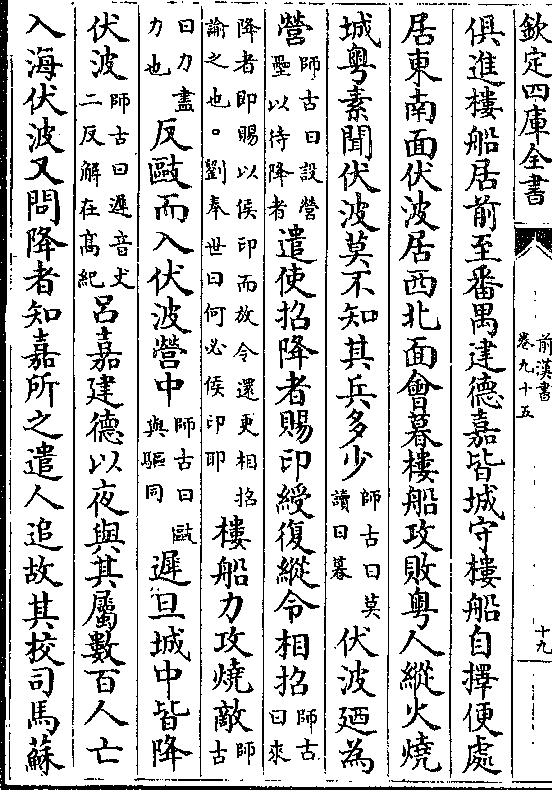 欽定四庫全書
前漢書
卷九十五
十九
俱進樓船居前至番禺建德嘉皆城守樓船自擇便處
居東南面伏波居西北面會暮樓船攻敗粤人縱火燒
城粤素聞伏波莫不知其兵多少師古曰莫讀曰暮伏波廼為
營師古曰設營壘以待降者遣使招降者賜印綬復縱令相招師古曰來
降者即賜以侯印而放令還更相招諭之也。劉奉世曰何必侯印耶樓船力攻燒敵師古
曰力盡力也反敺而入伏波營中師古曰敺與驅同遲旦城中皆降
伏波師古曰遲音丈二反解在高紀吕嘉建德以夜與其屬數百人亡
入海伏波又問降者知嘉所之遣人追故其校司馬蘇